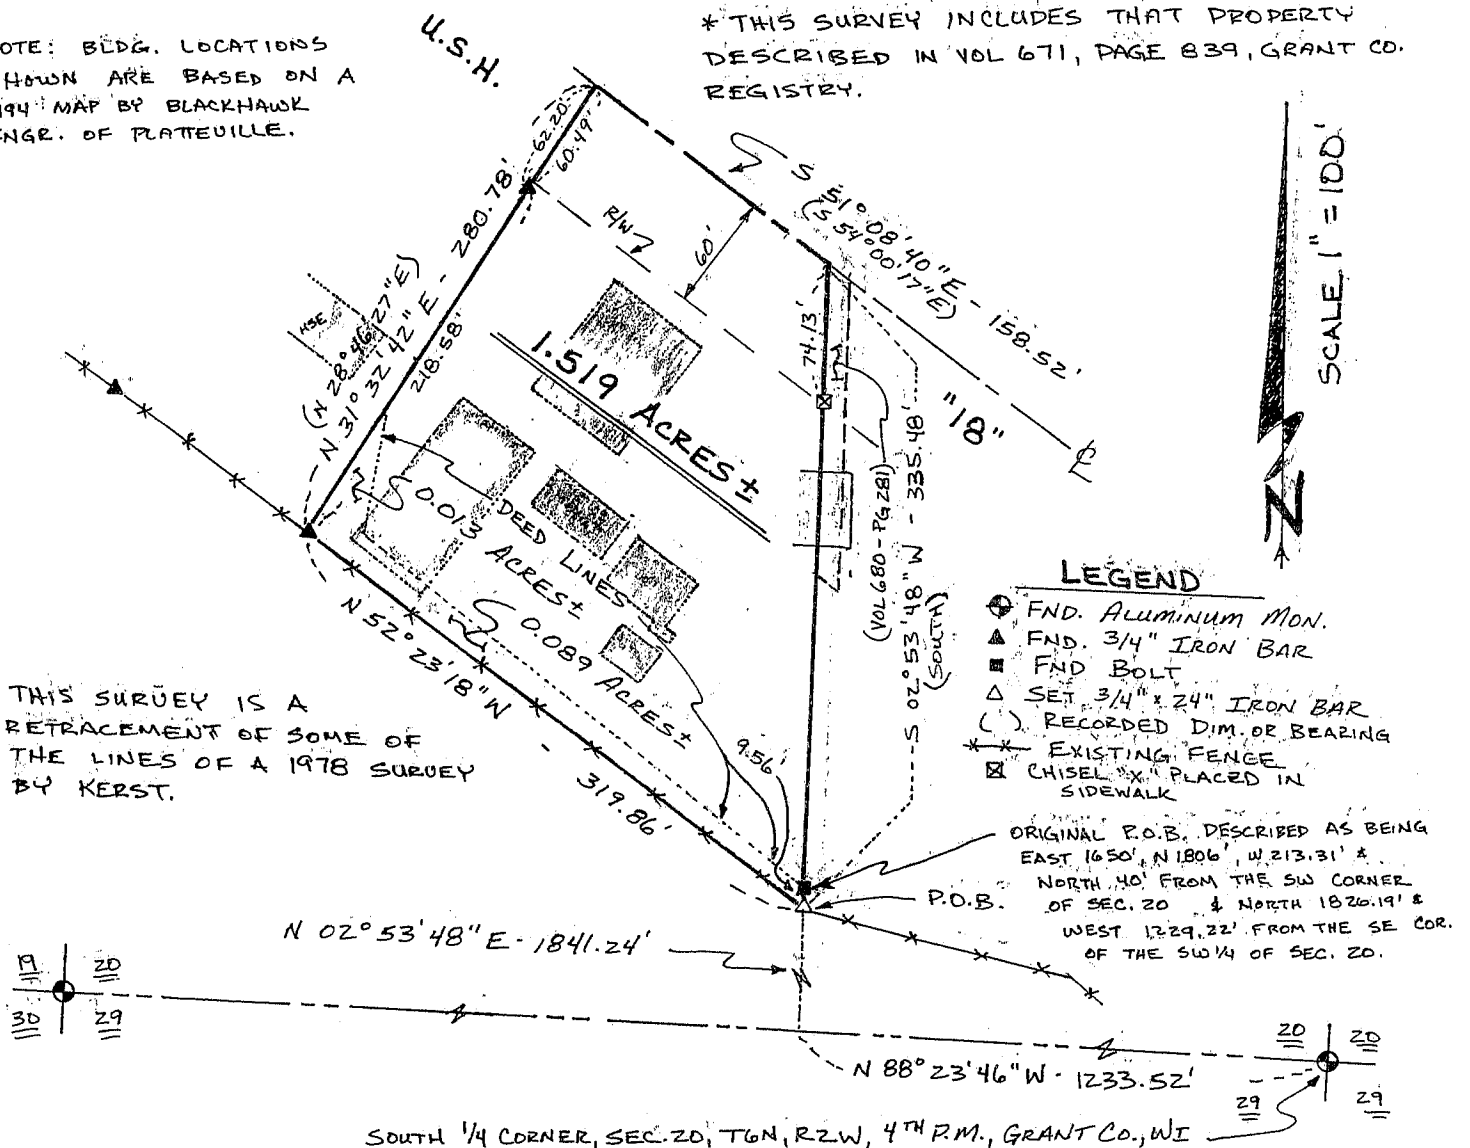 OTE: BLDG. LOCATIONS
HOWN ARE BASED ON A
94 MAP BY BLACKHAWK
ENGR. OF PLATTEVILLE.
* THIS SURVEY INCLUDES THAT PROPERTY
DESCRIBED IN VOL 671, PAGE 839, GRANT CO.
REGISTRY.
U.S.H.
"18"
62.20'
60.49'
S 51° 08' 40" E - 158.52'
(S 54° 00' 17" E)
R/W
60'
SCALE 1" = 100'
N
HSE
(N 28° 46' 27" E)
N 31° 32' 42" E - 280.78'
218.58'
74.13'
1.519 ACRES ±
(VOL 680 - PG 281)
S 02° 53' 48" W - 335.48'
(SOUTH)
0.013
ACRES ±
DEED LINES
0.089 ACRES ±
N 52° 23' 18" W - 319.86'
9.56'
LEGEND
FND. ALUMINUM MON.
FND. 3/4" IRON BAR
FND BOLT
SET 3/4" x 24" IRON BAR
( ) RECORDED DIM. OR BEARING
EXISTING FENCE
CHISEL "X" PLACED IN
SIDEWALK
THIS SURVEY IS A
RETRACEMENT OF SOME OF
THE LINES OF A 1978 SURVEY
BY KERST.
ORIGINAL P.O.B. DESCRIBED AS BEING
EAST 1650', N 1806', W 213.31' &
NORTH 40' FROM THE SW CORNER
OF SEC. 20 & NORTH 1826.19' &
WEST 1229.22' FROM THE SE COR.
OF THE SW 1/4 OF SEC. 20.
P.O.B.
N 02° 53' 48" E - 1841.24'
19 20
30 29
20 20
29 29
N 88° 23' 46" W - 1233.52'
SOUTH 1/4 CORNER, SEC. 20, T6N, R2W, 4TH P.M., GRANT CO., WI